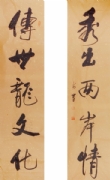 秀出两岸情
傳世龍文化